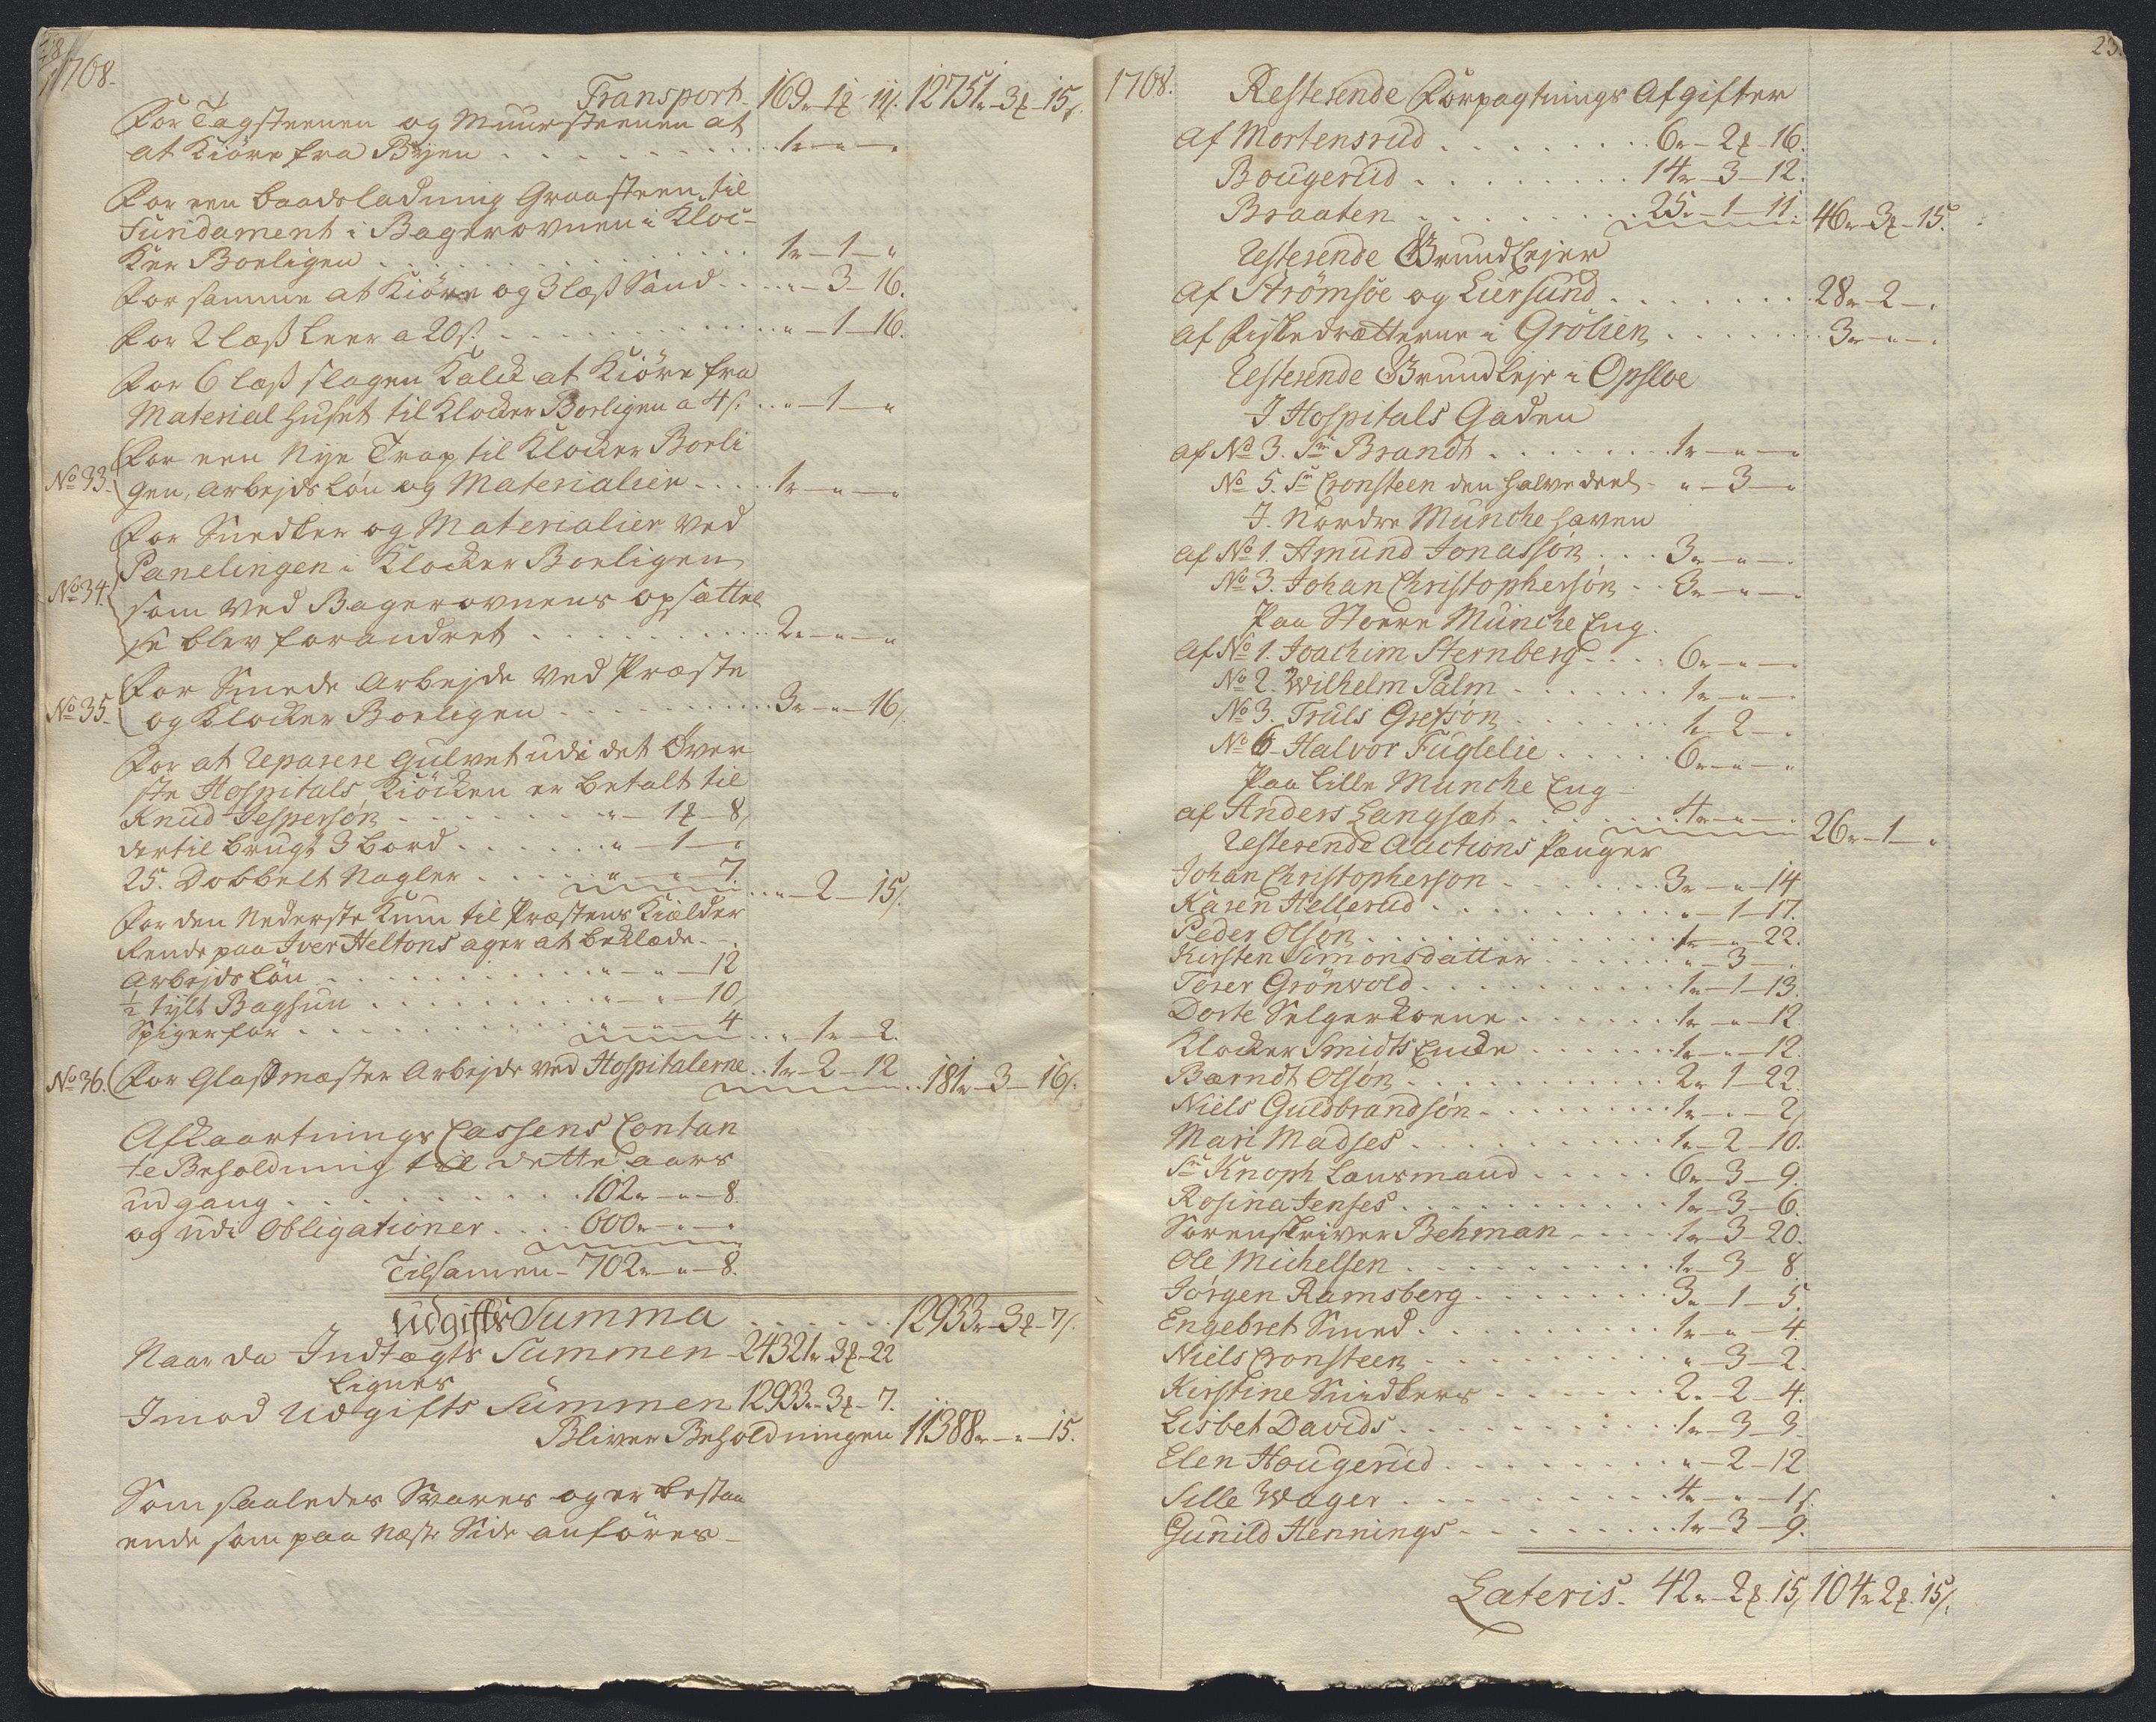 1768.
Transport. 169r-1ʒ-11s. 12751r-3ʒ-15s.
For Tagsteenen og Muursteenen at
at Kiöre fra Byen . . . 1r-"-"
For een baadsladning Graasteen til
Fundament i Bagerovnen i Kloc-
ker Boeligen . . . 1r-1-"
For samme at Kiöre og 3 læs Sand . . . "-3-16.
For 2 læs Leer a 20s. . . . "-1-16.
For 6 læs slagen Kalck at Kiöre fra
Material Huset til Klocker Boeligen a 4s. . . "-1-"
No 33. For een Nye Trap til Klocker Boeli
gen, Arbejds Lön og Materialier . . . 1r-"-"
For Snedker og Materialier ved
Panelingen i Klocker Boeligen
No 34. som ved Bagerovnens opsættel
se blev forandret . . . 2r-"-"
For Smede Arbejde ved Præste
No 35. og Klocker Boeligen . . . 3r-"-16s.
For at reparere gulvet udi det Över
ste Hospitals Kiöcken er betalt til
Knud Jespersön . . . "-1ʒ-8s
dertil brugt 3 bord . . . "-1-"
25. Dobbelt Nagler . . . "-"-7. . . "-2-15s.
For den Nederste Kum til Præstens Kielder
Rende paa Iver Heltons ager at beklæde.
Arbejds Lön . . . "-"-12
½ tylt Bagsun . . . "-"-10s
Spiger for . . . "-"-4 . . "-1r-2.
No 36. For Glasmæster Arbejde ved Hospitalerne . . 1r-2-12 . . 181r-3-16s.
Afkaartnings Cassens Contan
te Beholdning til dette aars
udgang . . . 102r-"-8.
og udi Obligationer . . . 600r-"-"
Tilsamen - 702r-"-8.
Udgifts Summa . . . 12933r-3ʒ-7s.
Naar da Indtægts Summen - 24321r-3ʒ-22
Lignes
Imod Udgifts Summen 12933r-3ʒ-7.
Bliver Beholdningen 11388r-"-15.
Som saaledes Svares og er bestaa
ende som paa næste Side anföres-
1768.
Resterende Forpagtnings Afgifter
af Mortensrud . . . 6r-2ʒ-16.
Bougerud . . . 14r-3-12.
Braaten . . . 25r-1-11. 46r-3ʒ-15.
Resterende Grund Lejer
af Strömsöe og Liersund . . . 28r-2-"
af Fiskedrætterne i Grölien . . . 3r-"-"
Resterende Grundleje i Opsloe
I Hospitals Gaden
af No 3. Sr Brandt . . . 1r-"-"
No 5. Sr Cronsteen den halve deel - "-3-"
I. Nordre Munche haven
af No 1. Amund Jonassön . . . 3r-"-"
No 3. Johan Christophersön . . 3r-"-"
Paa Störe Munche Eng.
af No 1. Joachim Sternberg . . . 6r-"-"
No 2. Wilhelm Palm . . . 1r-"-"
No 3. Truls Gretsön . . . 1-2-"
No 6. Halvor Fuglelie . . . 6r-"-"
Paa Lille Munche Eng
af Anders Langsæt . . . 4r-"-" 26r-1-"
Resterende Auctions Penger
Johan Christopherson . . . 3r-"-14
Karen Hellerud . . . "-1-17.
Peder Olsön . . . 1r-"-22.
Kirsten Simonsdatter . . . "-3-"
Torer Grönvold . . . 1r-1-13.
Dorte Selgerkoene . . . 1r-"-12.
Klocker Smidts Encke . . . 1r-"-12.
Bærndt Olsön . . . 2r-1-22.
Niels Guldbrandsön . . . 1r-"-2s
Mari Madses . . . 1r-2-10.
Sr Knoph Lensmand . . . 6r-3-9.
Rosina Jenses . . . 1r-3-6.
Sorenskriver Behman . . . 1r-3-20.
Ole Michelsen . . . 1r-3-8
Jörgen Ramsberg . . . 3r-1-5.
Engebret Smed . . . 1r-"-4.
Niels Cronsteen . . . "-3-2.
Kirstine Snidkers . . . 2r-2-4.
Lisbet Davids . . . 1r-3-3.
Elen Hougerud . . . "-2-12
Sille Wager . . . 4r-"-1s.
Gunild Hennings . . . 1r-3-9.
Lateris. 42r-2ʒ.15s 104r2ʒ.15s.